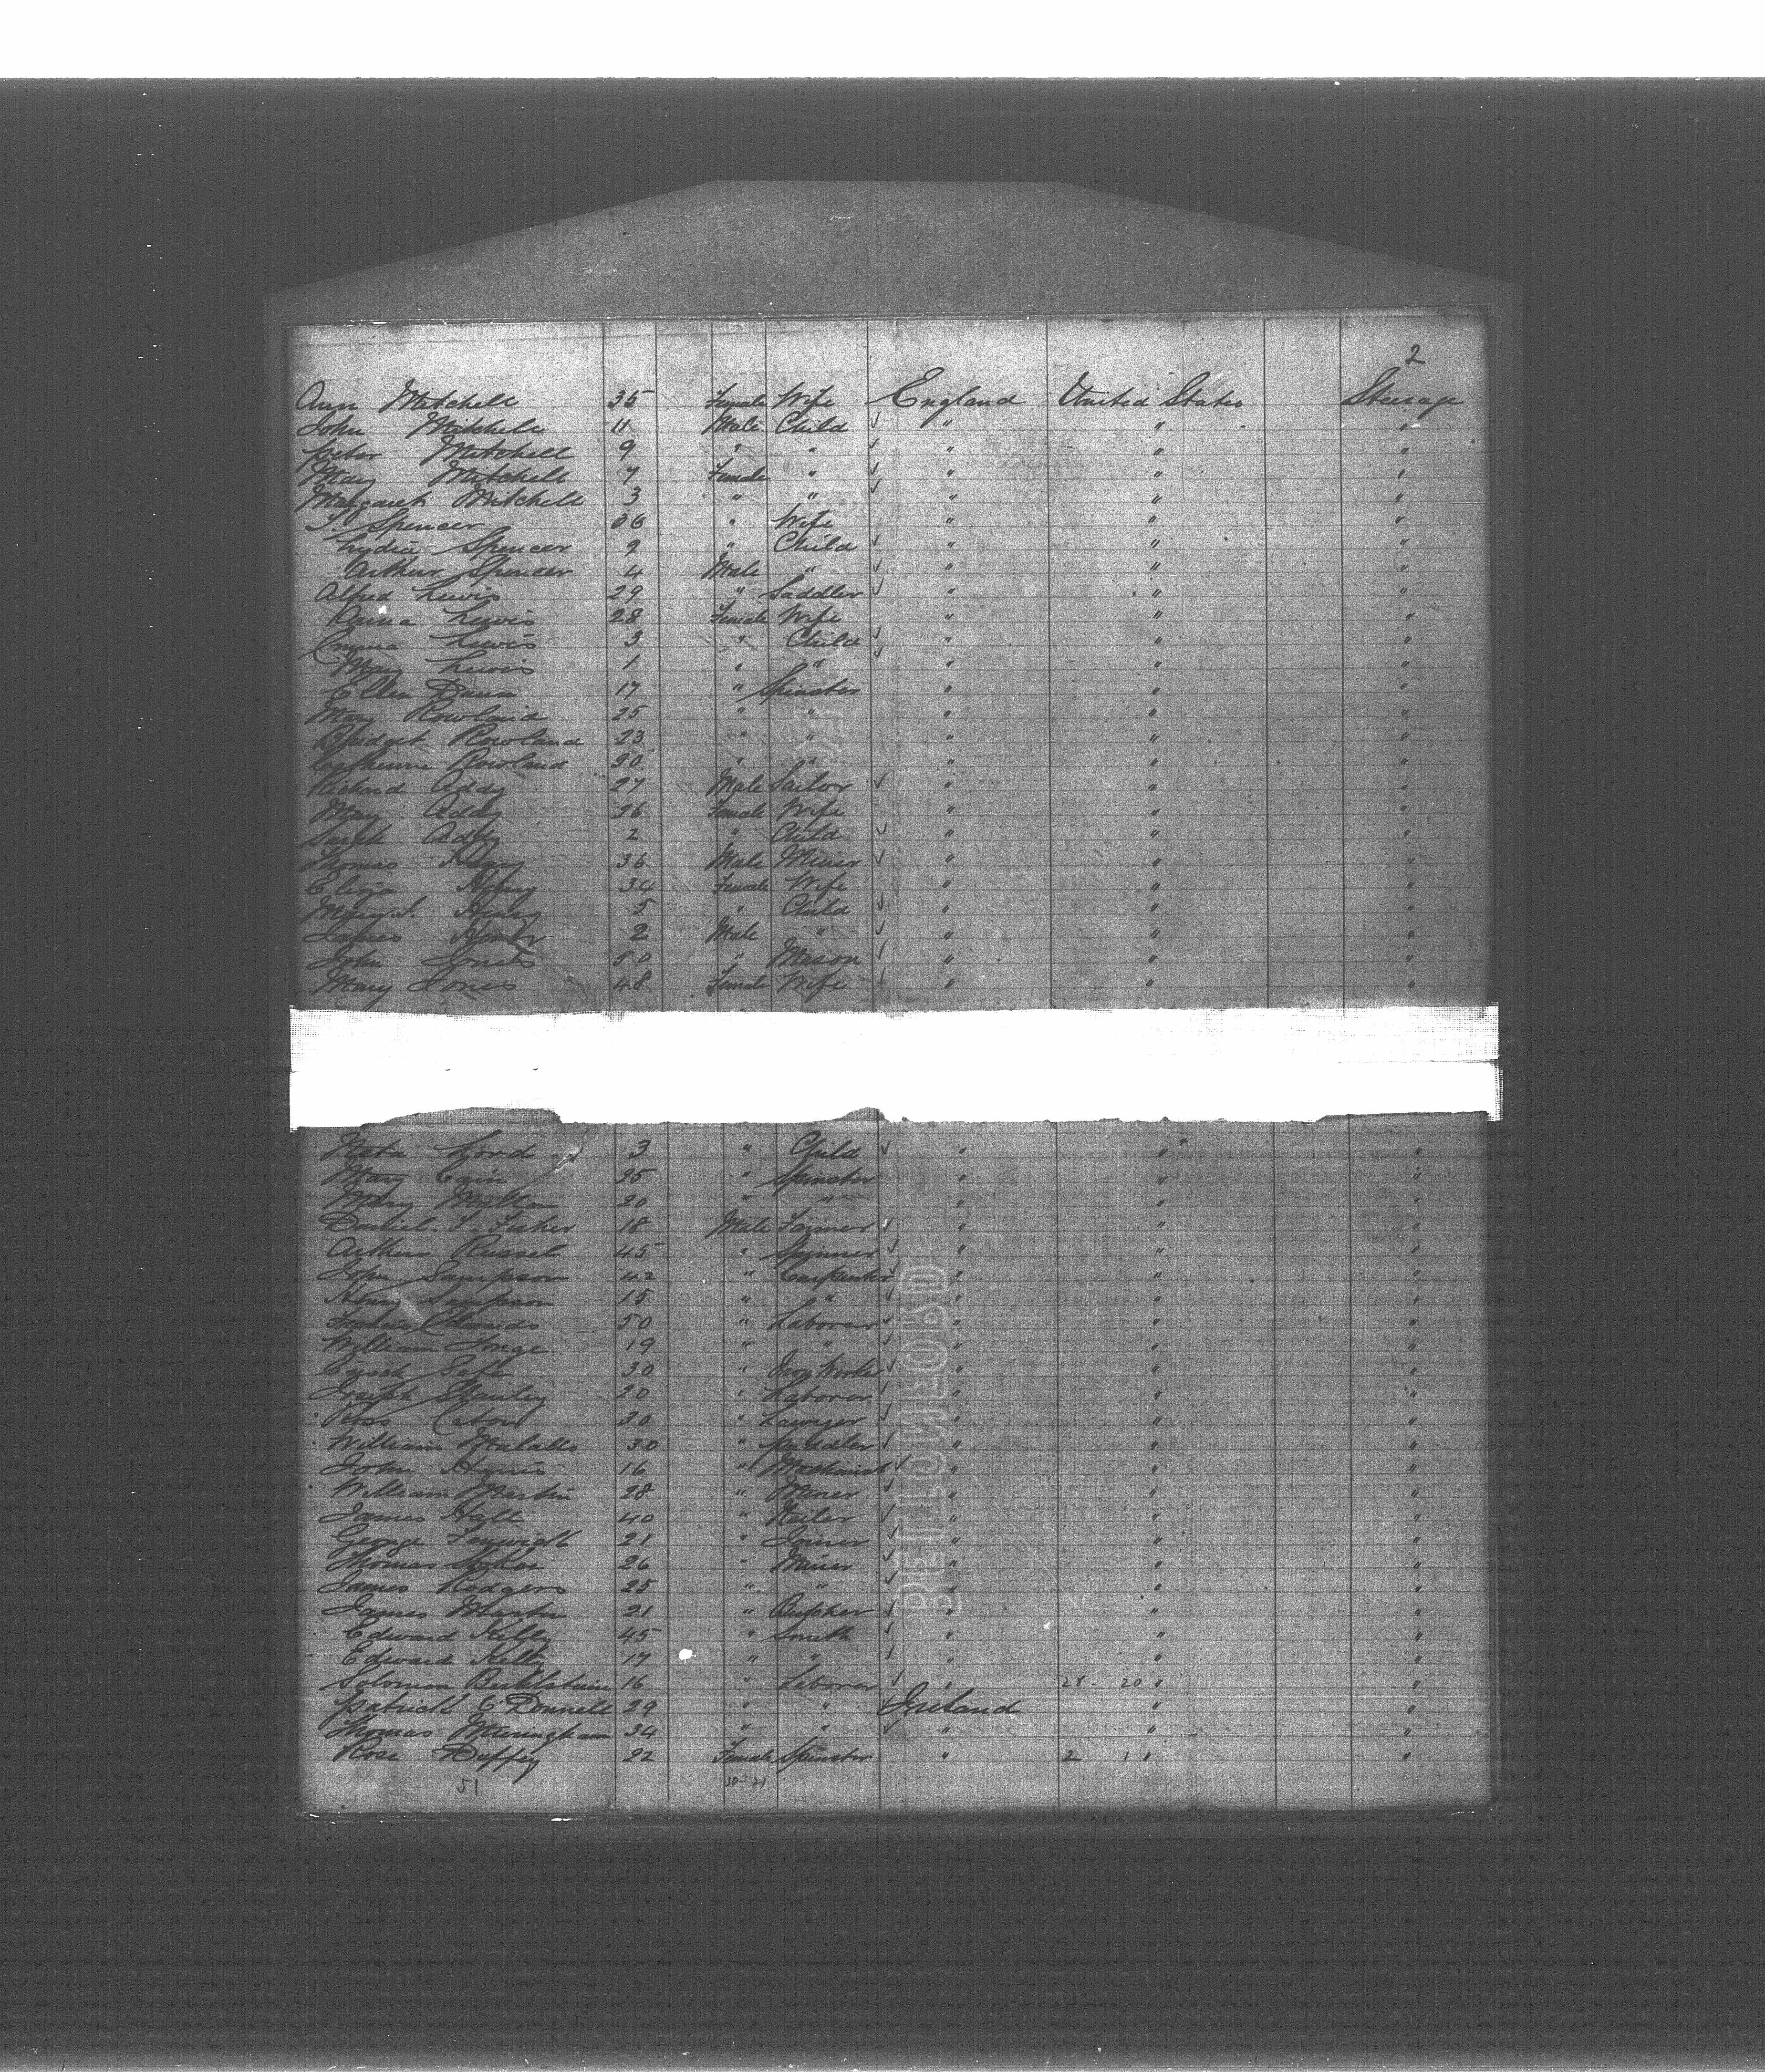 2
Ann Mitchell 35 Female Wife England United States Steerage
John Mitchell 11 Male Child ✓ " " "
Peter Mitchell 9 " " ✓ " " "
Mary Mitchell 7 Female " ✓ " " "
Margaret Mitchell 3 " " ✓ " " "
Spencer 36 " Wife " " "
Lydia Spencer 9 " Child ✓ " " "
Arthur Spencer 4 Male " ✓ " " "
Alfred Lewis 29 " Saddler ✓ " " "
Anna Lewis 28 Female Wife " " "
Emma Lewis 3 " Child ✓ " " "
Mary Lewis 1 " " ✓ " " "
Ellen Dunn 17 " Spinster " " "
Mary Rowland 25 " " " " "
Bridget Rowland 23 " " " " "
Catherine Rowland 20 " " " " "
Richard Addy 27 Male Sailor ✓ " " "
Mary Addy 26 Female Wife " " "
Sarah Addy 2 " Child ✓ " " "
Thomas Henry 36 Male Miner ✓ " " "
Eliza Henry 34 Female Wife " " "
Mary S. Henry 5 " Child ✓ " " "
James Henry 2 Male " ✓ " " "
John Jones 50 " Mason ✓ " " "
Mary Jones 48 Female Wife " " "
Lord 3 " Child ✓ " " "
Mary 25 " Spinster " " "
Mary 20 " " " " "
Daniel Fisher 18 Male Farmer ✓ " " "
Arthur Russel 45 " Spinner ✓ " " "
John Sampson 42 " Carpenter ✓ " " "
Henry Sampson 15 " " ✓ " " "
Francis Edwards 50 " Laborer ✓ " " "
William 19 " " ✓ " " "
30 " Iron Worker ✓ " " "
Joseph Stanley 20 " Laborer ✓ " " "
Ross 30 " Lawyer ✓ " " "
William 30 " Puddler ✓ " " "
John 16 " Machinist ✓ " " "
William Martin 28 " Miner ✓ " " "
James Hall 40 " ✓ " " "
George Fenwick 21 " Joiner ✓ " " "
Thomas 26 " Miner ✓ " " "
James Rodgers 25 " " ✓ " " "
James Martin 21 " Butcher ✓ " " "
Edward Kelly 45 " Smith ✓ " " "
Edward Kelly 17 " " ✓ " " "
Solomon 16 " Laborer ✓ " 28 20 " "
Patrick O'Donnell 29 " " ✓ Ireland " "
Thomas 34 " " ✓ " " "
Rose Duffy 22 Female Spinster " 2 1 " "
51 30-21